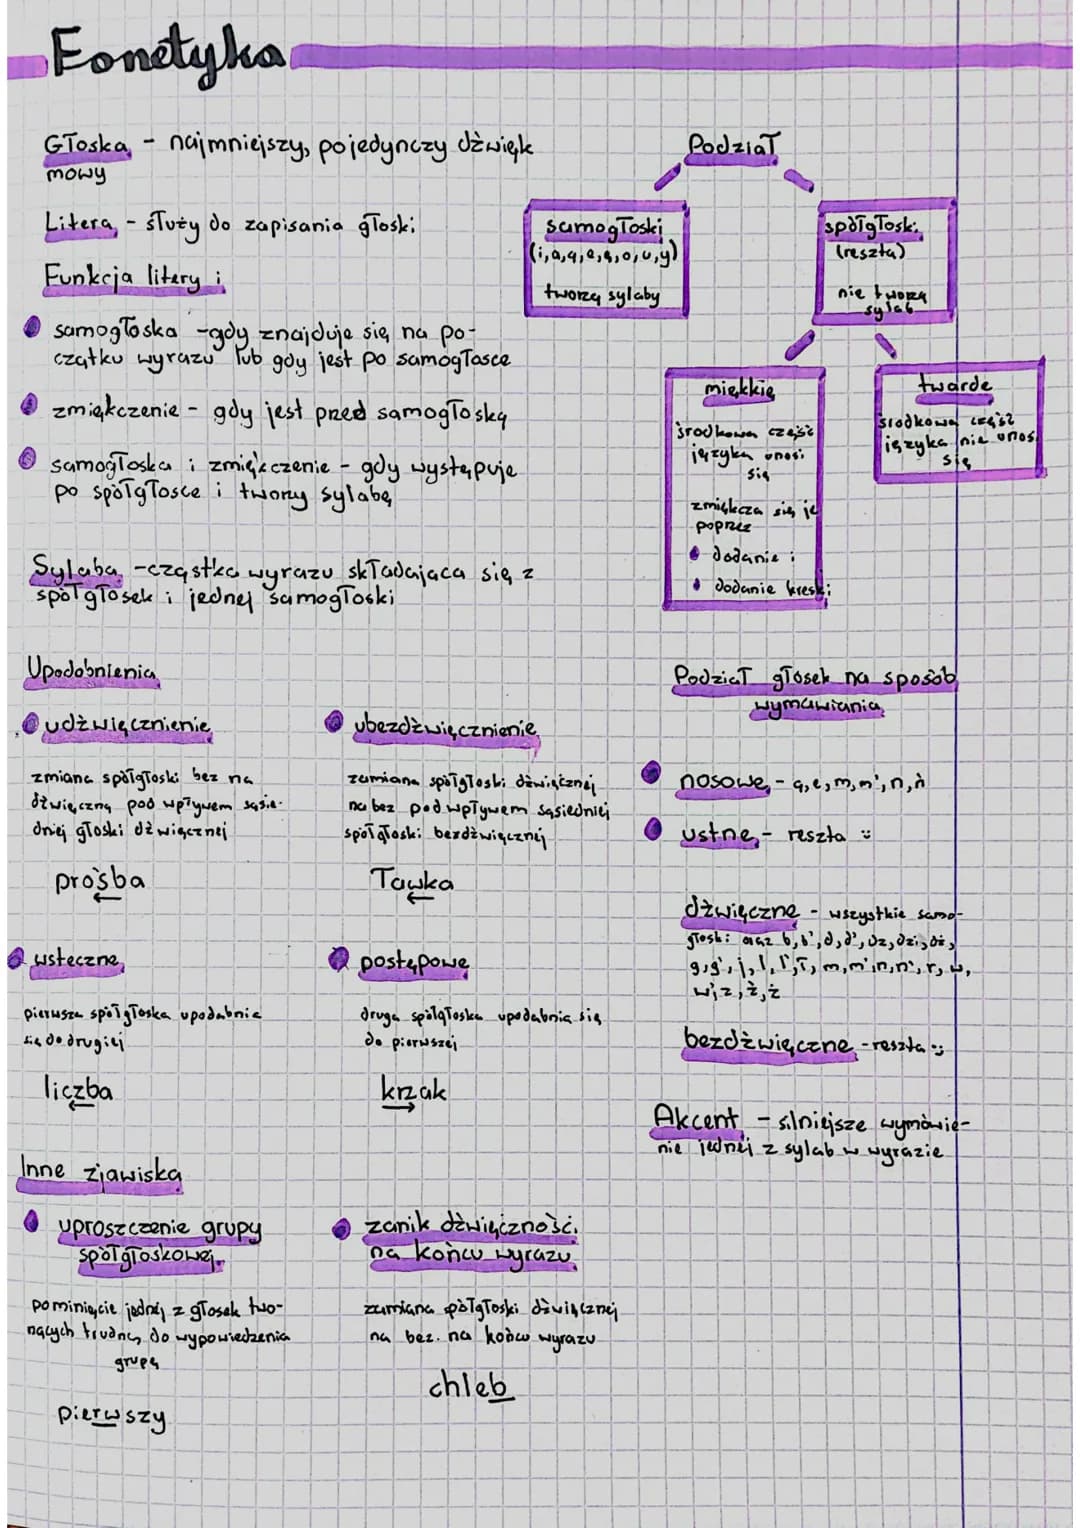 Fonetyka
Głoska - najmniejszy, pojedynczy dźwięk
mowy
Litera - służy do zapisania głoski
Funkcja litery i
samogłoska - gdy znajduje się na po-
czątku wyrazu lub gdy jest po samogłosce
zmiękczenie - gdy jest przed samogłoską
samogłoska i zmiękczenie - gdy występuje
po spółgłosce i tworzy sylabę
Sylaba - cząstka wyrazu składająca się z
spółgłosek i jednej samogłoski
Podział
samogłoski
(i,a,ą,e,ę,o,u,y)
tworzą sylaby
spółgłoski
(reszta)
nie tworzą
sylab
miękkie
środkowa część
języka unosi
się
zmiękcza się je
poprzez
dodanie i
dodanie kreski
twarde
środkowa część
języka nie unosi
się
Upodobnienia
udźwięcznienie
zmiana spółgłoski bez na
dźwięczną pod wpływem sąsie-
dniej głoski dźwięcznej
prośba
ubezdźwięcznienie
zamiana spółgłoski dźwięcznej
na bez pod wpływem sąsiedniej
spółgłoski bezdźwięcznej
ławka
wsteczne
pierwsza spółgłoska upodabnia
się do drugiej
liczba
postępowe
druga spółgłoska upodabnia się
do pierwszej
krzak
Inne zjawiska
uproszczenie grupy
spółgłoskowej
pominięcie jednej z głosek two-
rzących trudną do wypowiedzenia
grupę
pierwszy
zanik dźwięczności
na końcu wyrazu
zamiana spółgłoski dźwięcznej
na bez. na końcu wyrazu
chleb
Podział głosek na sposób
wymawiania
nosowe - ą,ę,m,m',n,ń
ustne - reszta :)
dźwięczne - wszystkie samo-
głoski oraz b,b',d,d',dz,dzi,dź,
g,g',j,l,l',ł,m,m',n,n',r,w,
w',z,ź,ż
bezdźwięczne - reszta :)
Akcent - silniejsze wymówie-
nie jednej z sylab w wyrazie